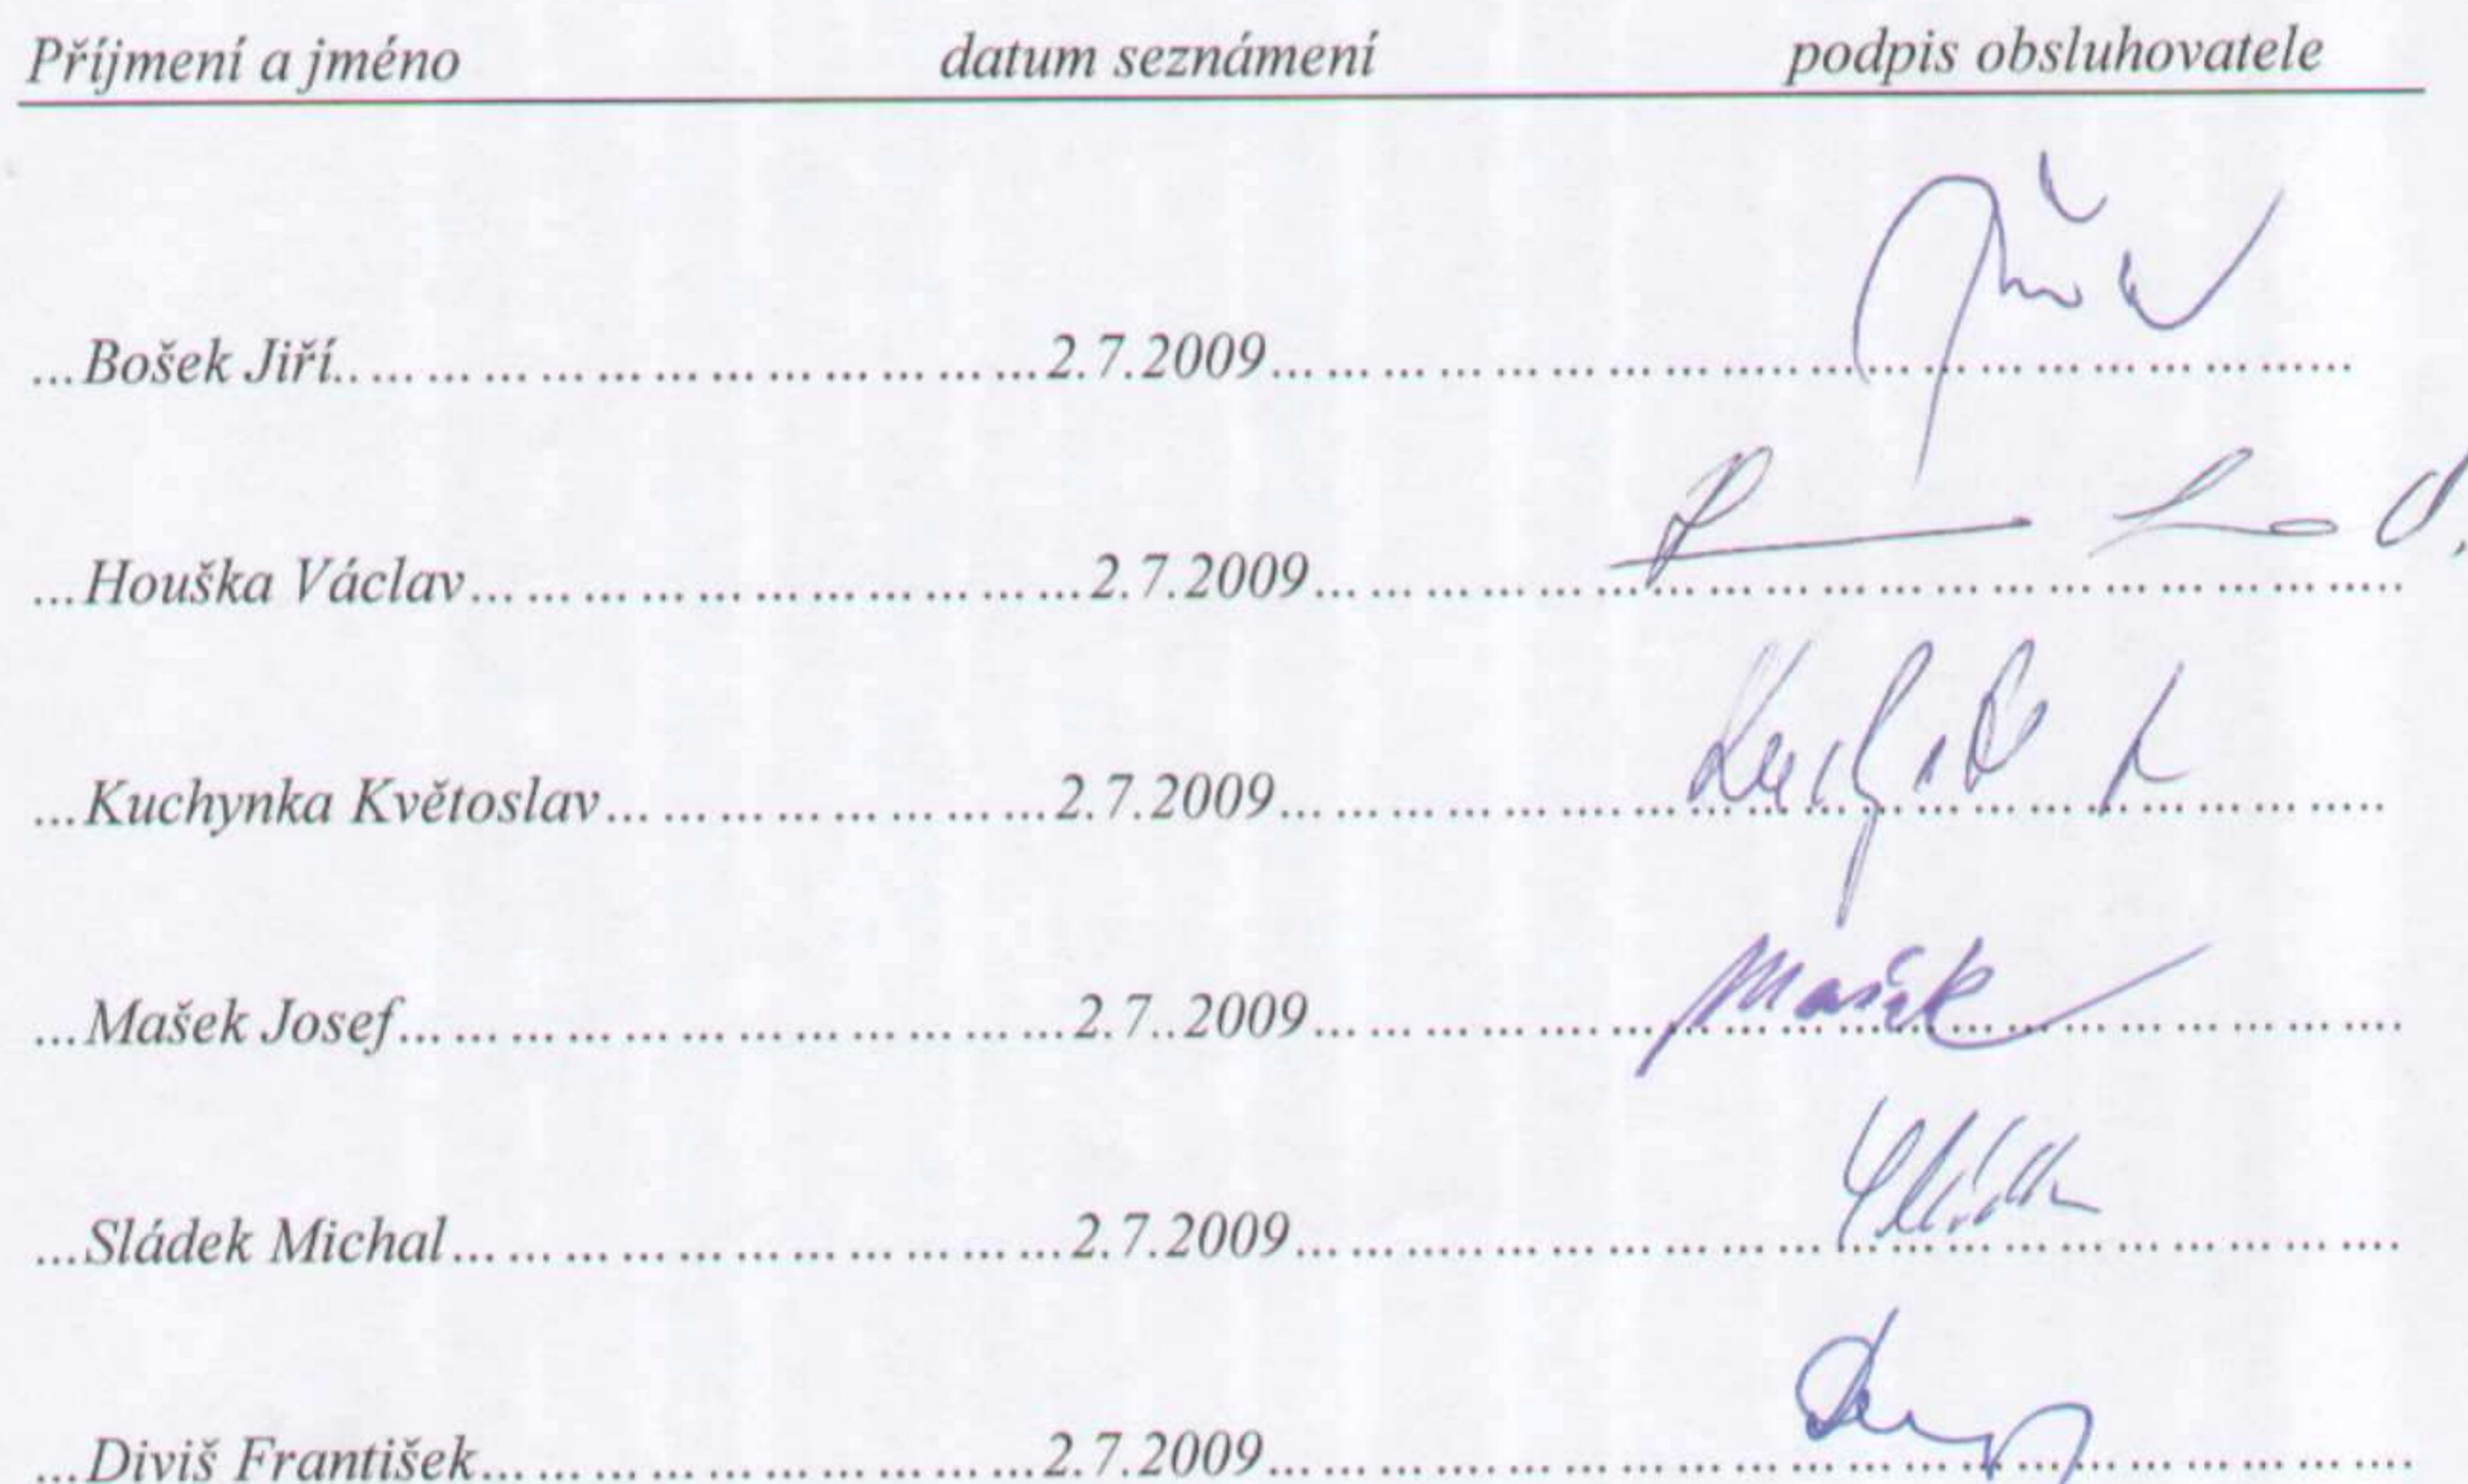 Příjmení a jméno datum seznámení podpis obsluhovatele
...Bošek Jiří.....................................2.7.2009.......................................................
...Houška Václav.................................2.7.2009.......................................................
...Kuchynka Květoslav........................2.7.2009.......................................................
...Mašek Josef....................................2.7..2009....................................................... Mašek
...Sládek Michal.................................2.7.2009.......................................................
...Diviš František..............................2.7.2009.......................................................